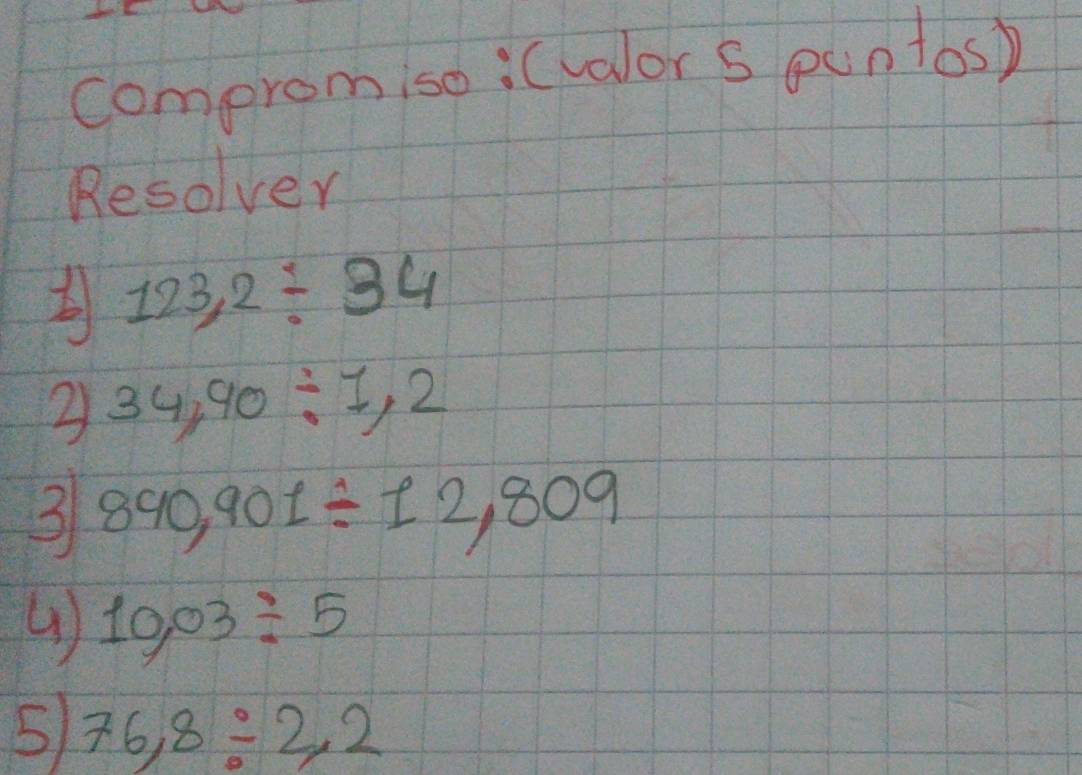 Compromiso:(valor 5 puntos)
Resolver
1) 123,2 ÷ 34
2) 34,90 ÷ 1,2
3) 890,901 ÷ 12,809
4) 10,03 ÷ 5
5) 76,8 ÷ 2,2